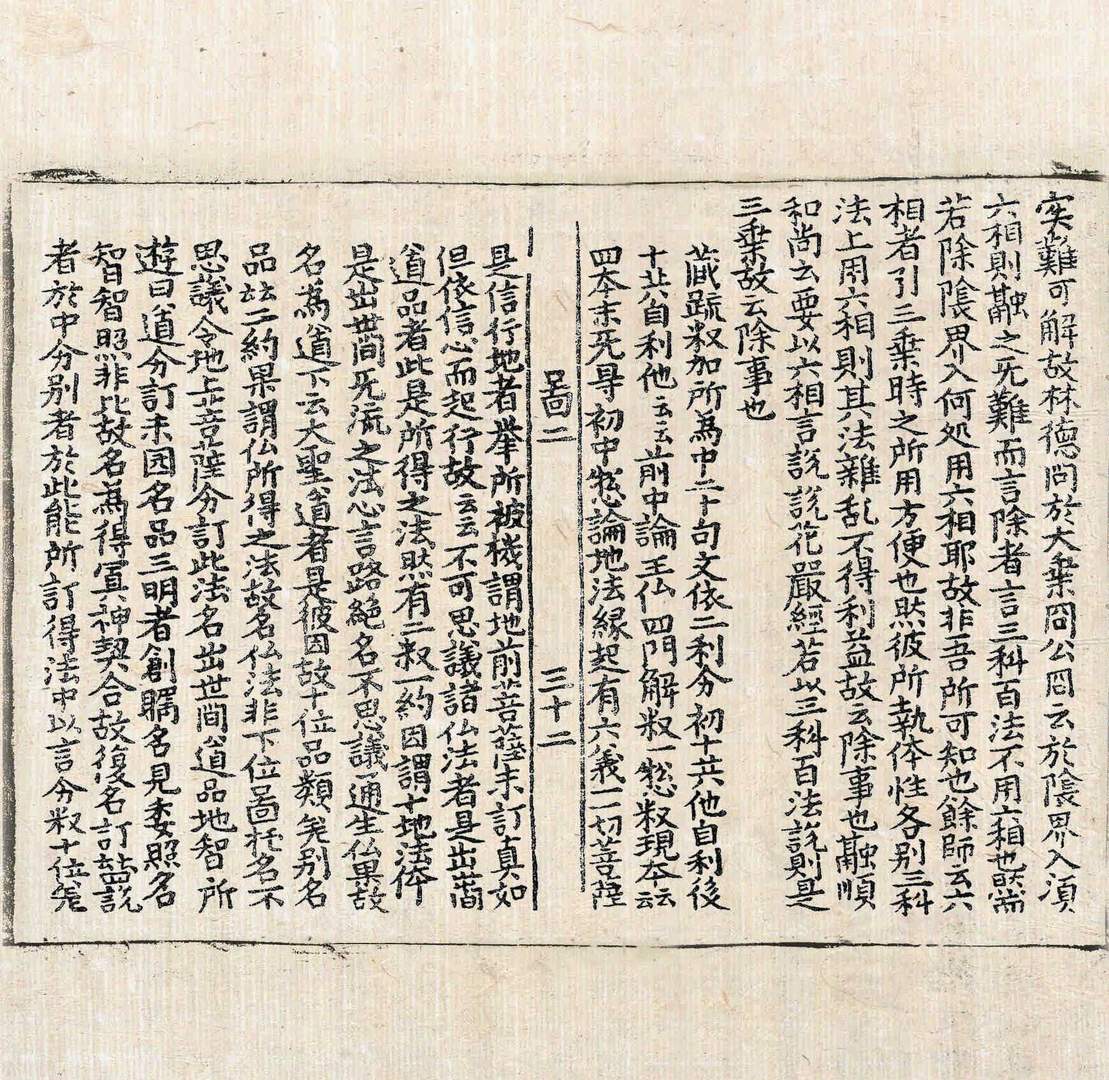 実難可解故林德問於大乗問公問云於陰界入須
六相則融之旡難而言除者言三科百法不用六相也然
若除陰界入何処用六相耶故非吾所可知也餘師云六
相者引三乗時之所用方便也然彼所執体性各別三科
法上用六相則其法雜乱不得利益故云除事也融順
和尚云要以六相言說說花嚴經若以三科百法說則是
三乗故云除事也
蔵䟽釈加所為中二十句文依二利分初十共他自利後
十共自利他云云前中論王仏四門解釈一惣釈現本云云
四本末旡㝵初中惣論地法縁起有六義一一切菩𦯧
啚二 三十二
是信行地者舉所被機謂地前菩𦯧未訂真如
但依信心而起行故云云不可思議諸仏法者是出世間
道品者此是所得之法然有二釈一約因謂十地法体
是出世間旡流之法心言路絶名不思議通生仏果故
名為道下云大聖道者是彼因故十位品類差別名
品也二約果謂仏所得之法故名仏法非下位啚拓名不
思議令地上菩𦯧分訂此法名出世間道品地智所
遊曰道分訂未园名品三明者創矚名見委照名
智智照非比故名為得冥神契合故復名訂故說
者於中分別者於此能所訂得法中以言分釈十位差